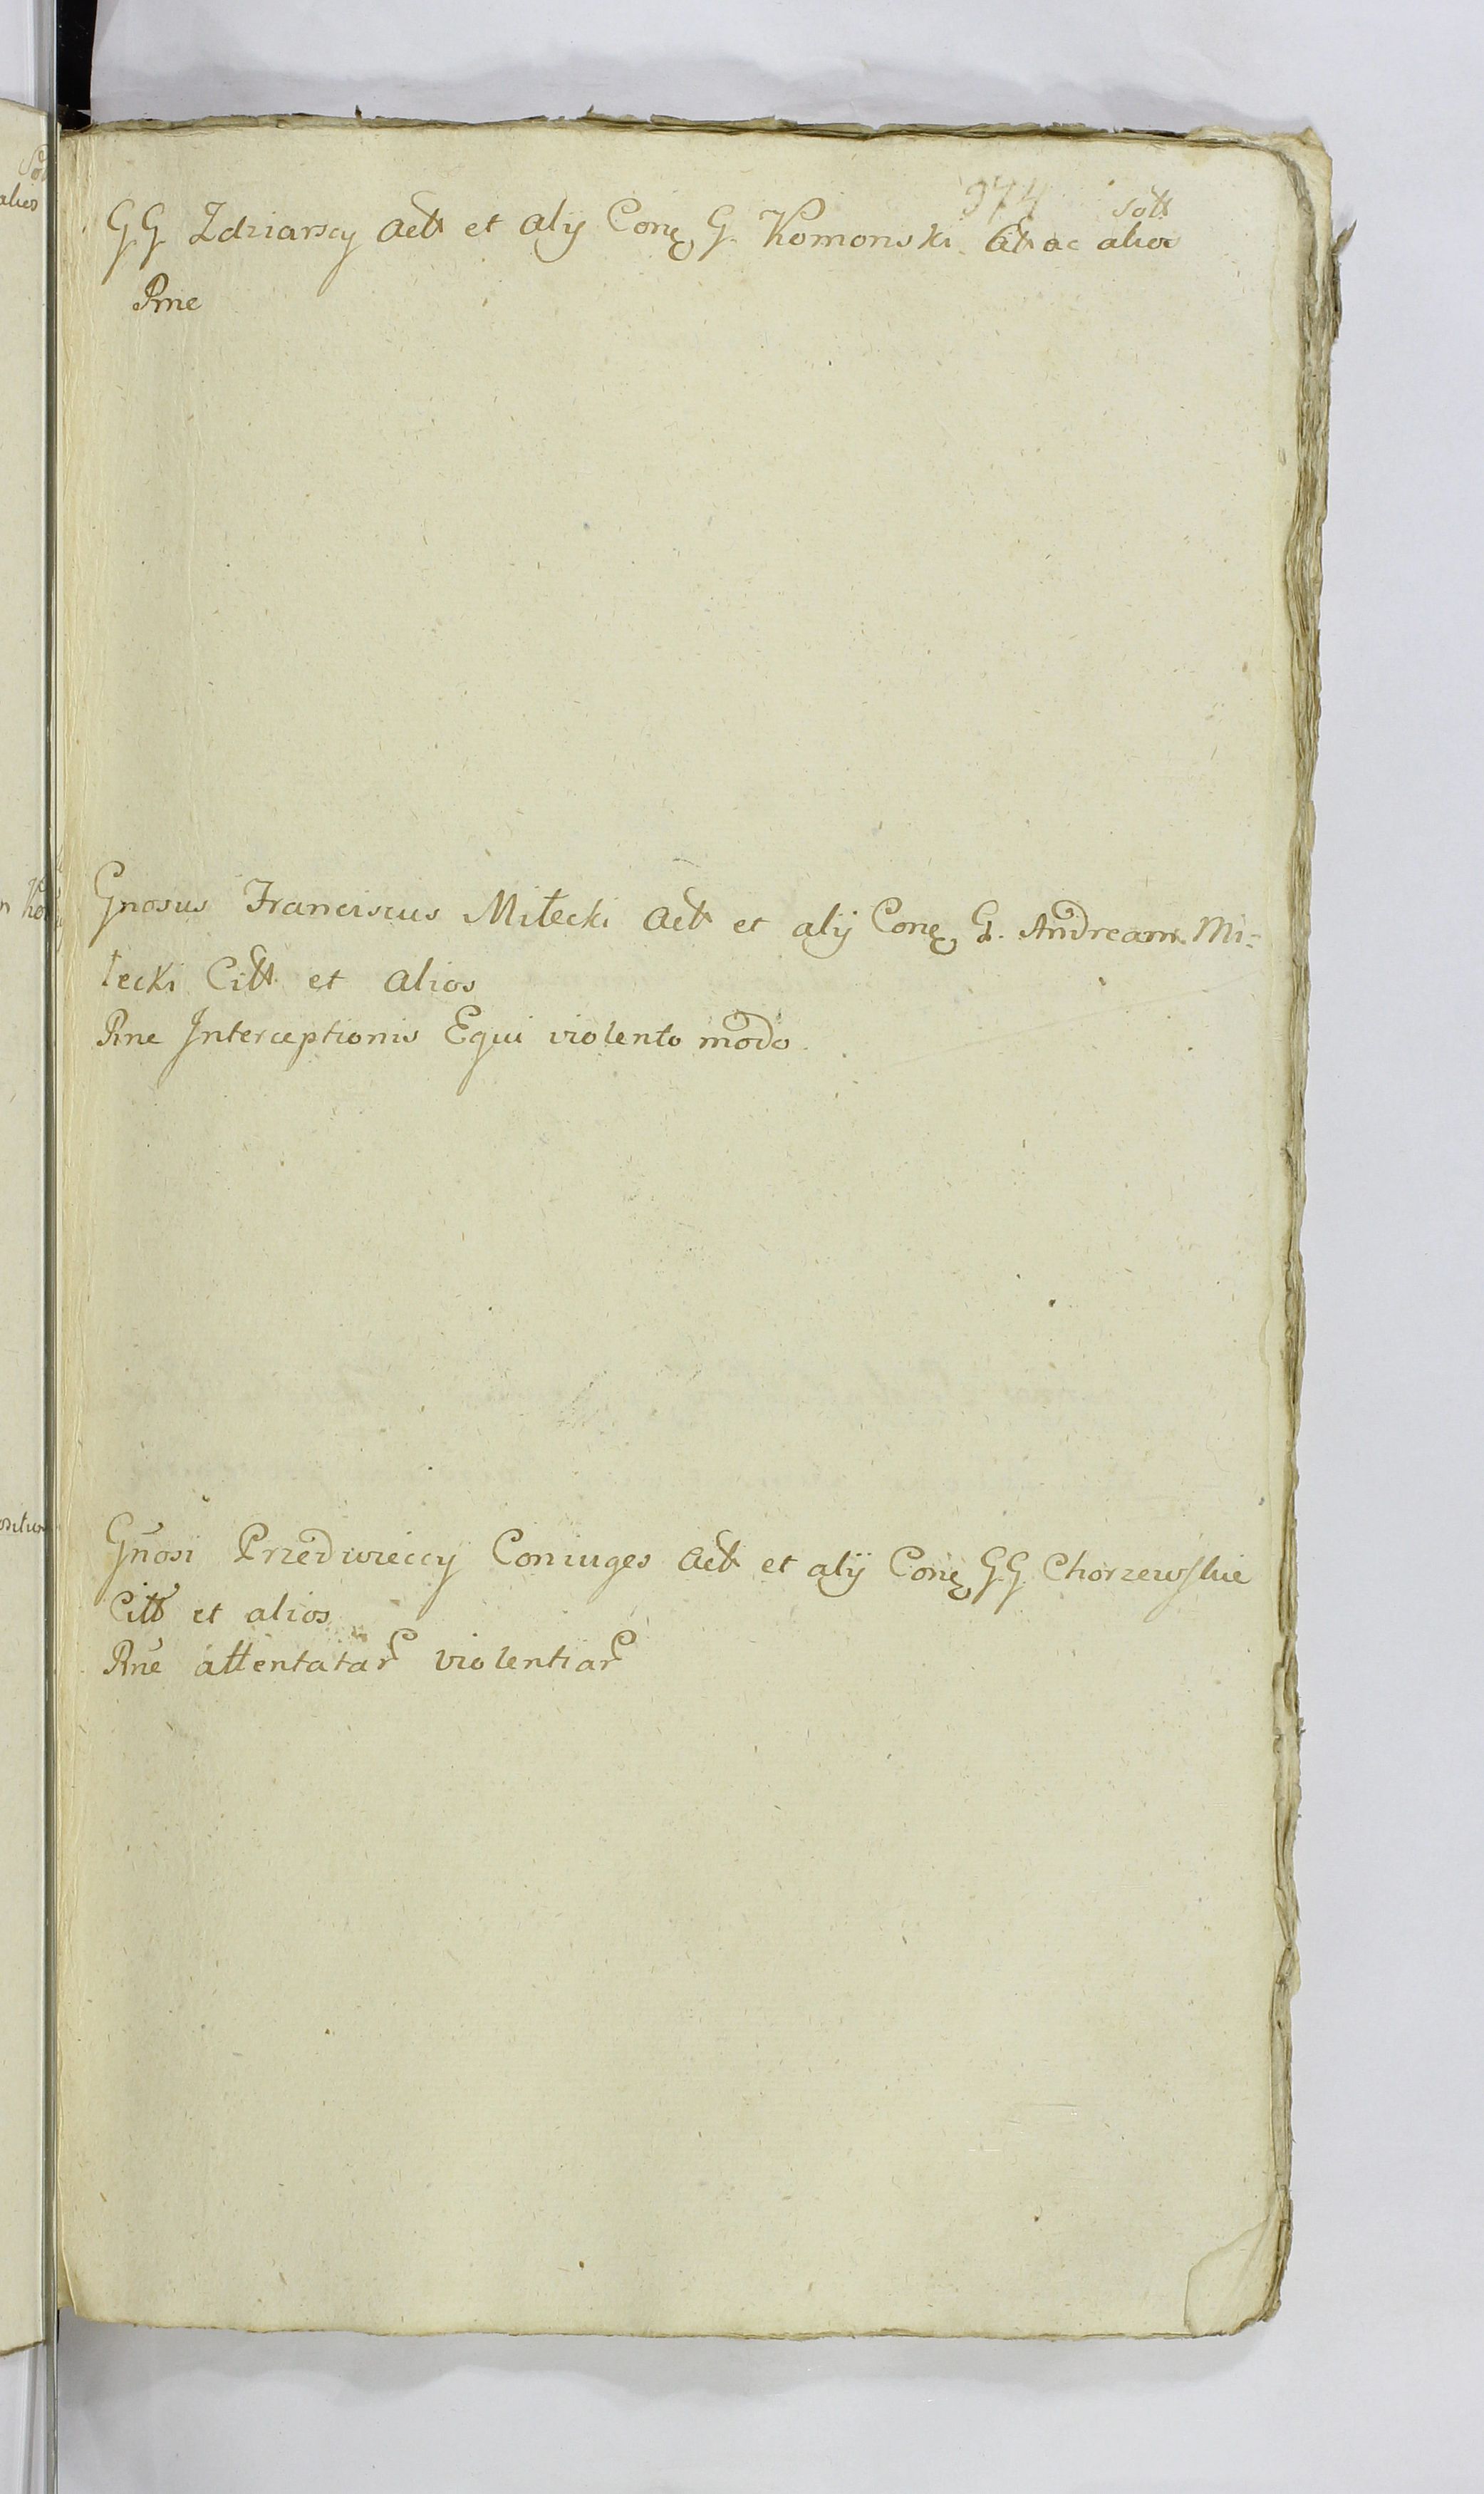 974 Sott
GG Zdziarscy Actt et alij Conę G. Komonski Citt ac alios
Rne
Gnosus Franciscus Miłecki Actt et alij Conę G. Andream Mi=
łecki Citt et alios
Rne Interceptionis Equi violento modo.
Gnosi Przedwieccy Coniuges Actt et alij Conę GG Chorzewskie
Citt et alios
Rne attentatar violentiar